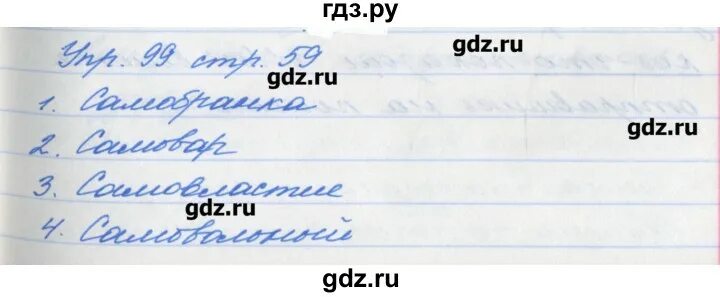 гдз.ру
Упр. 99 стр. 59
gdz.ru
1. Самобранка
gdz.ru
2. Самовар
3. Самовластие
gdz.ru
4. Самовольный
gdz.ru